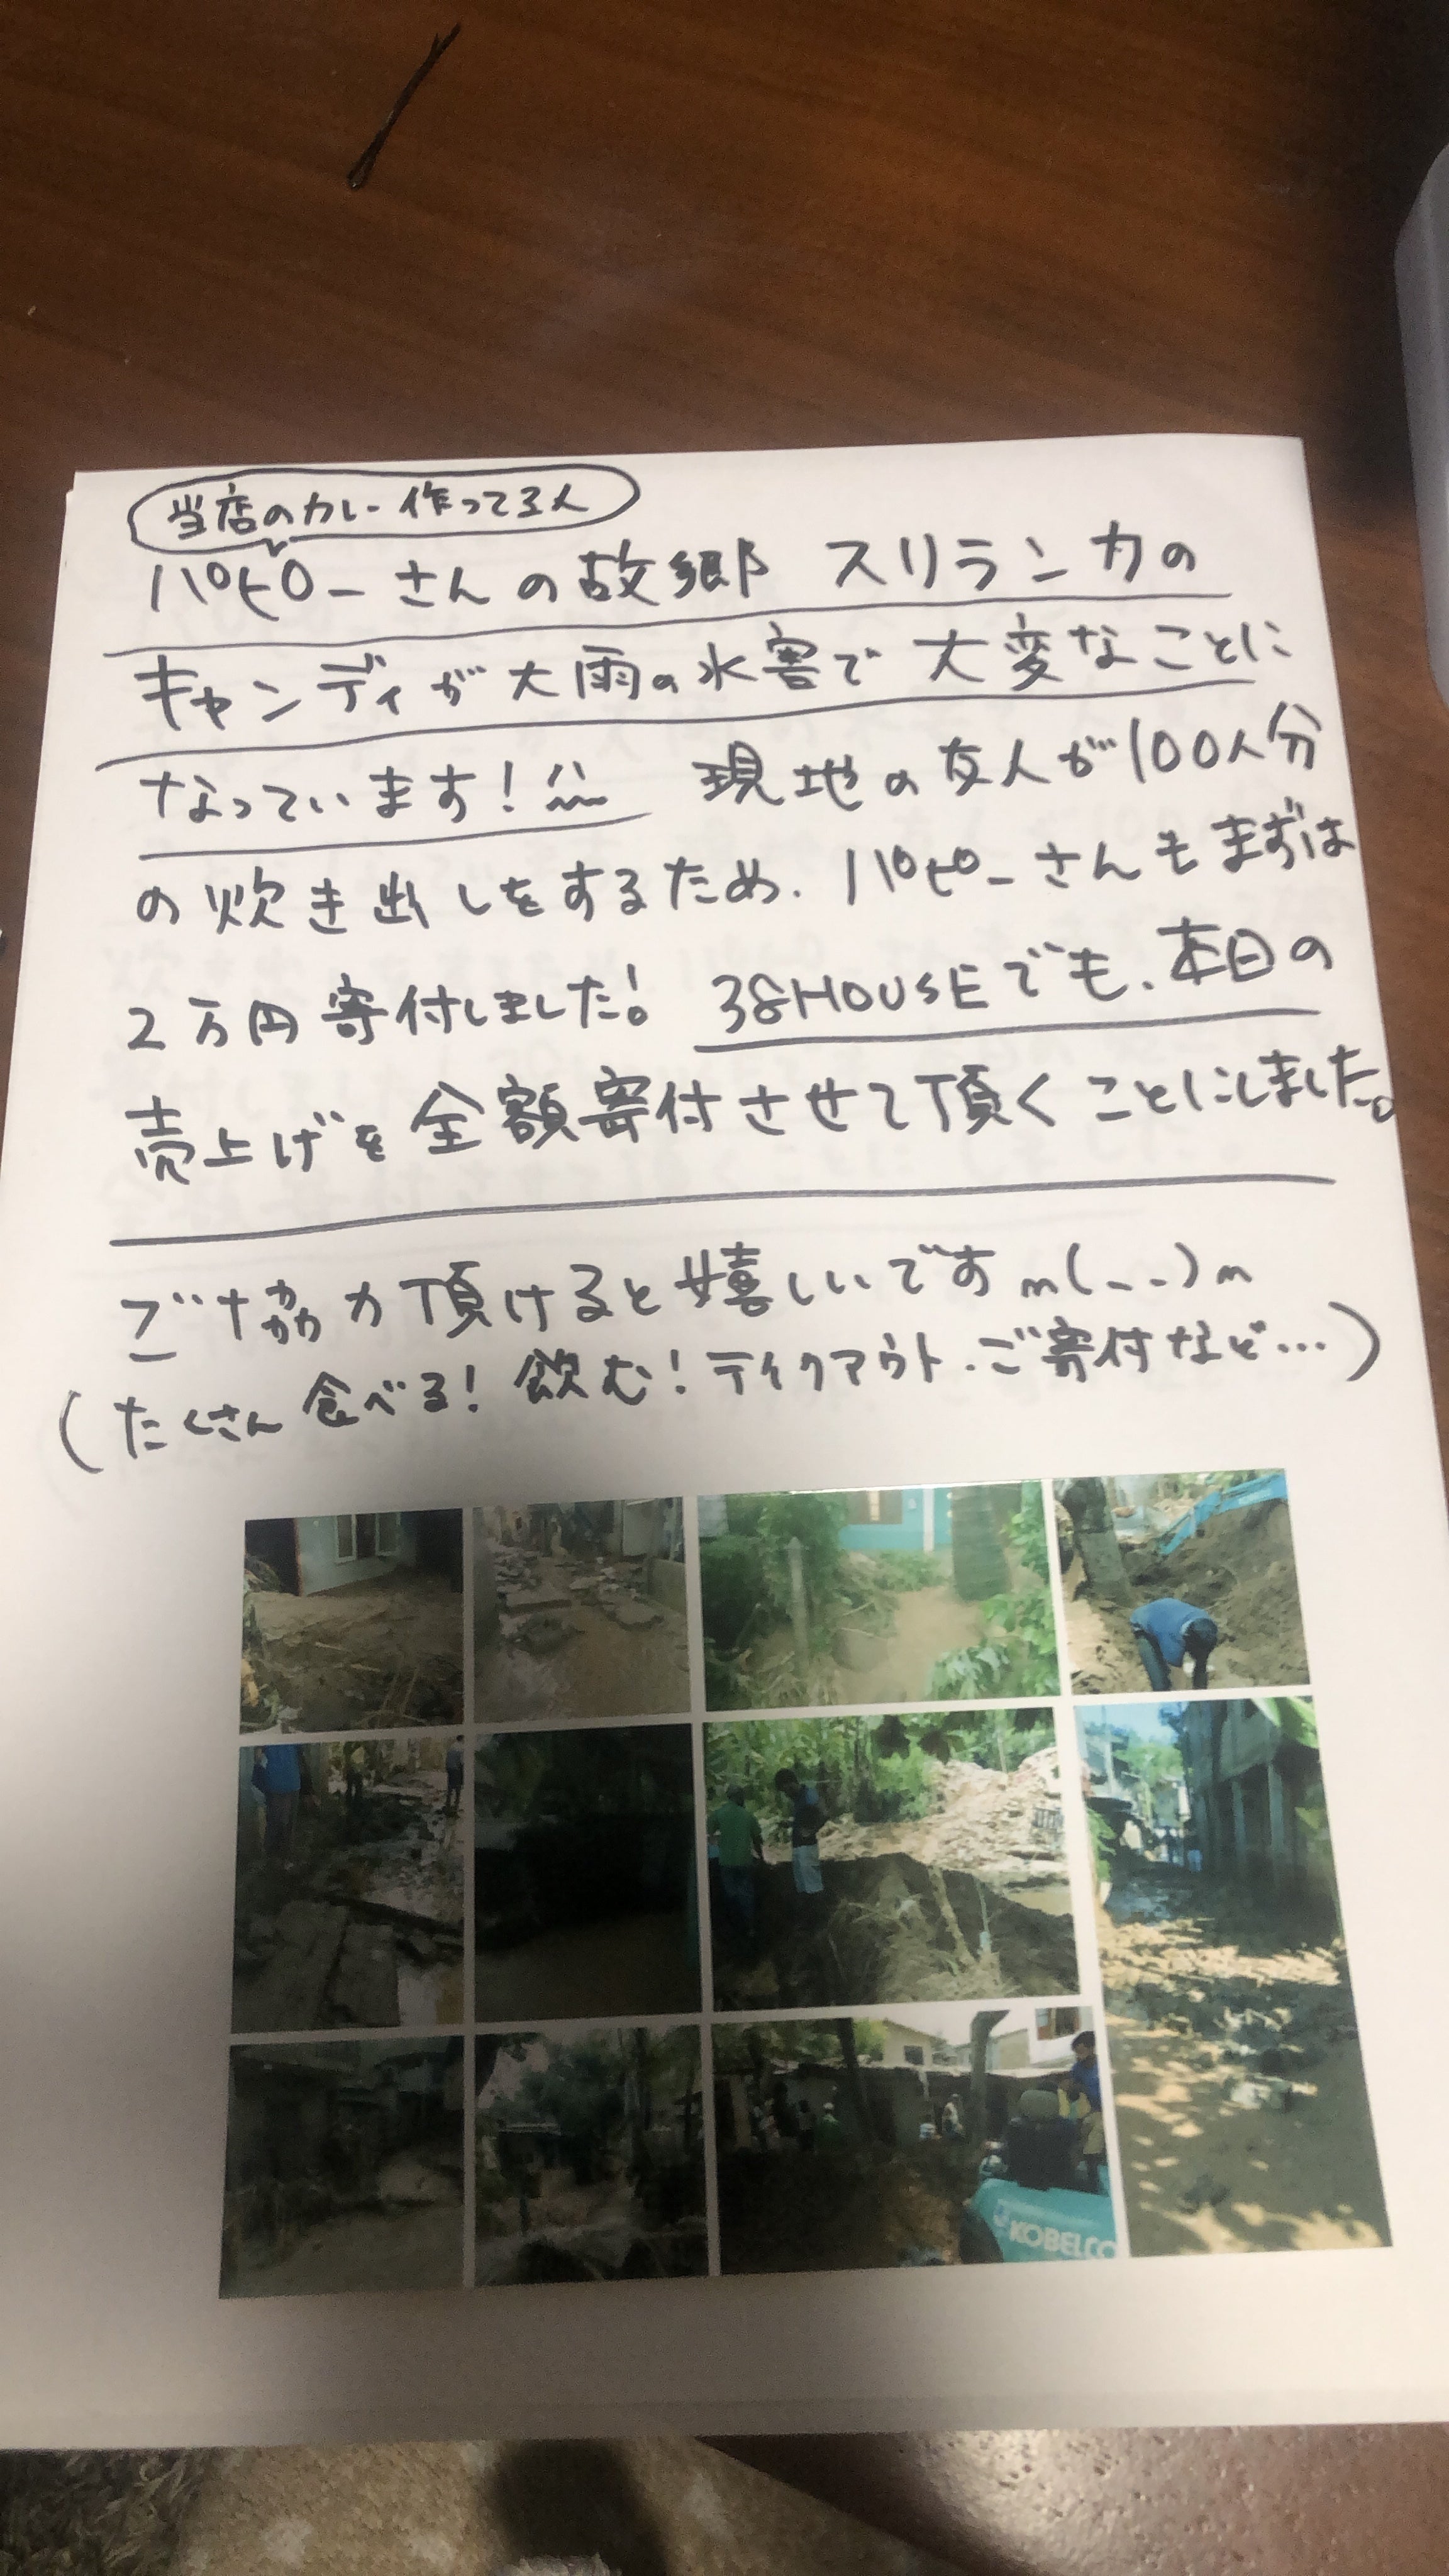 当店のカレー作ってる人
パセローさんの故郷 スリランカの
キャンディが大雨の水害で大変なことに
なっています! 現地の友人が100人分
の炊き出しをするため、パセローさんもまずは
2万円寄付しました! 38HOUSEでも、本日の
売上げを全額寄付させて頂くことにしました。
ご協力頂けると嬉しいですm(_ _)m
(たくさん食べる!飲む!テイクアウト、ご寄付など…)
KOBELCO